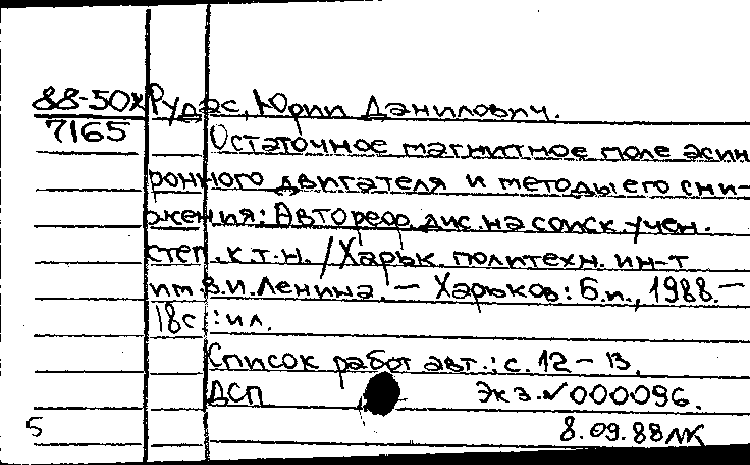 88-50х Рудас, Юрий Данилович.
7165
Остаточное магнитное поле асин
ронного двигателя и методы его сни-
жения: Автореф. дис. на соиск. учен.
степ. к.т.н. / Харьк. политехн. ин-т
им В.И. Ленина. — Харьков: Б.и., 1988. —
18с : ил.
Список работ авт.: с. 12 – 13.
ДСП Экз. 000096.
5 8.09.88 ЛК